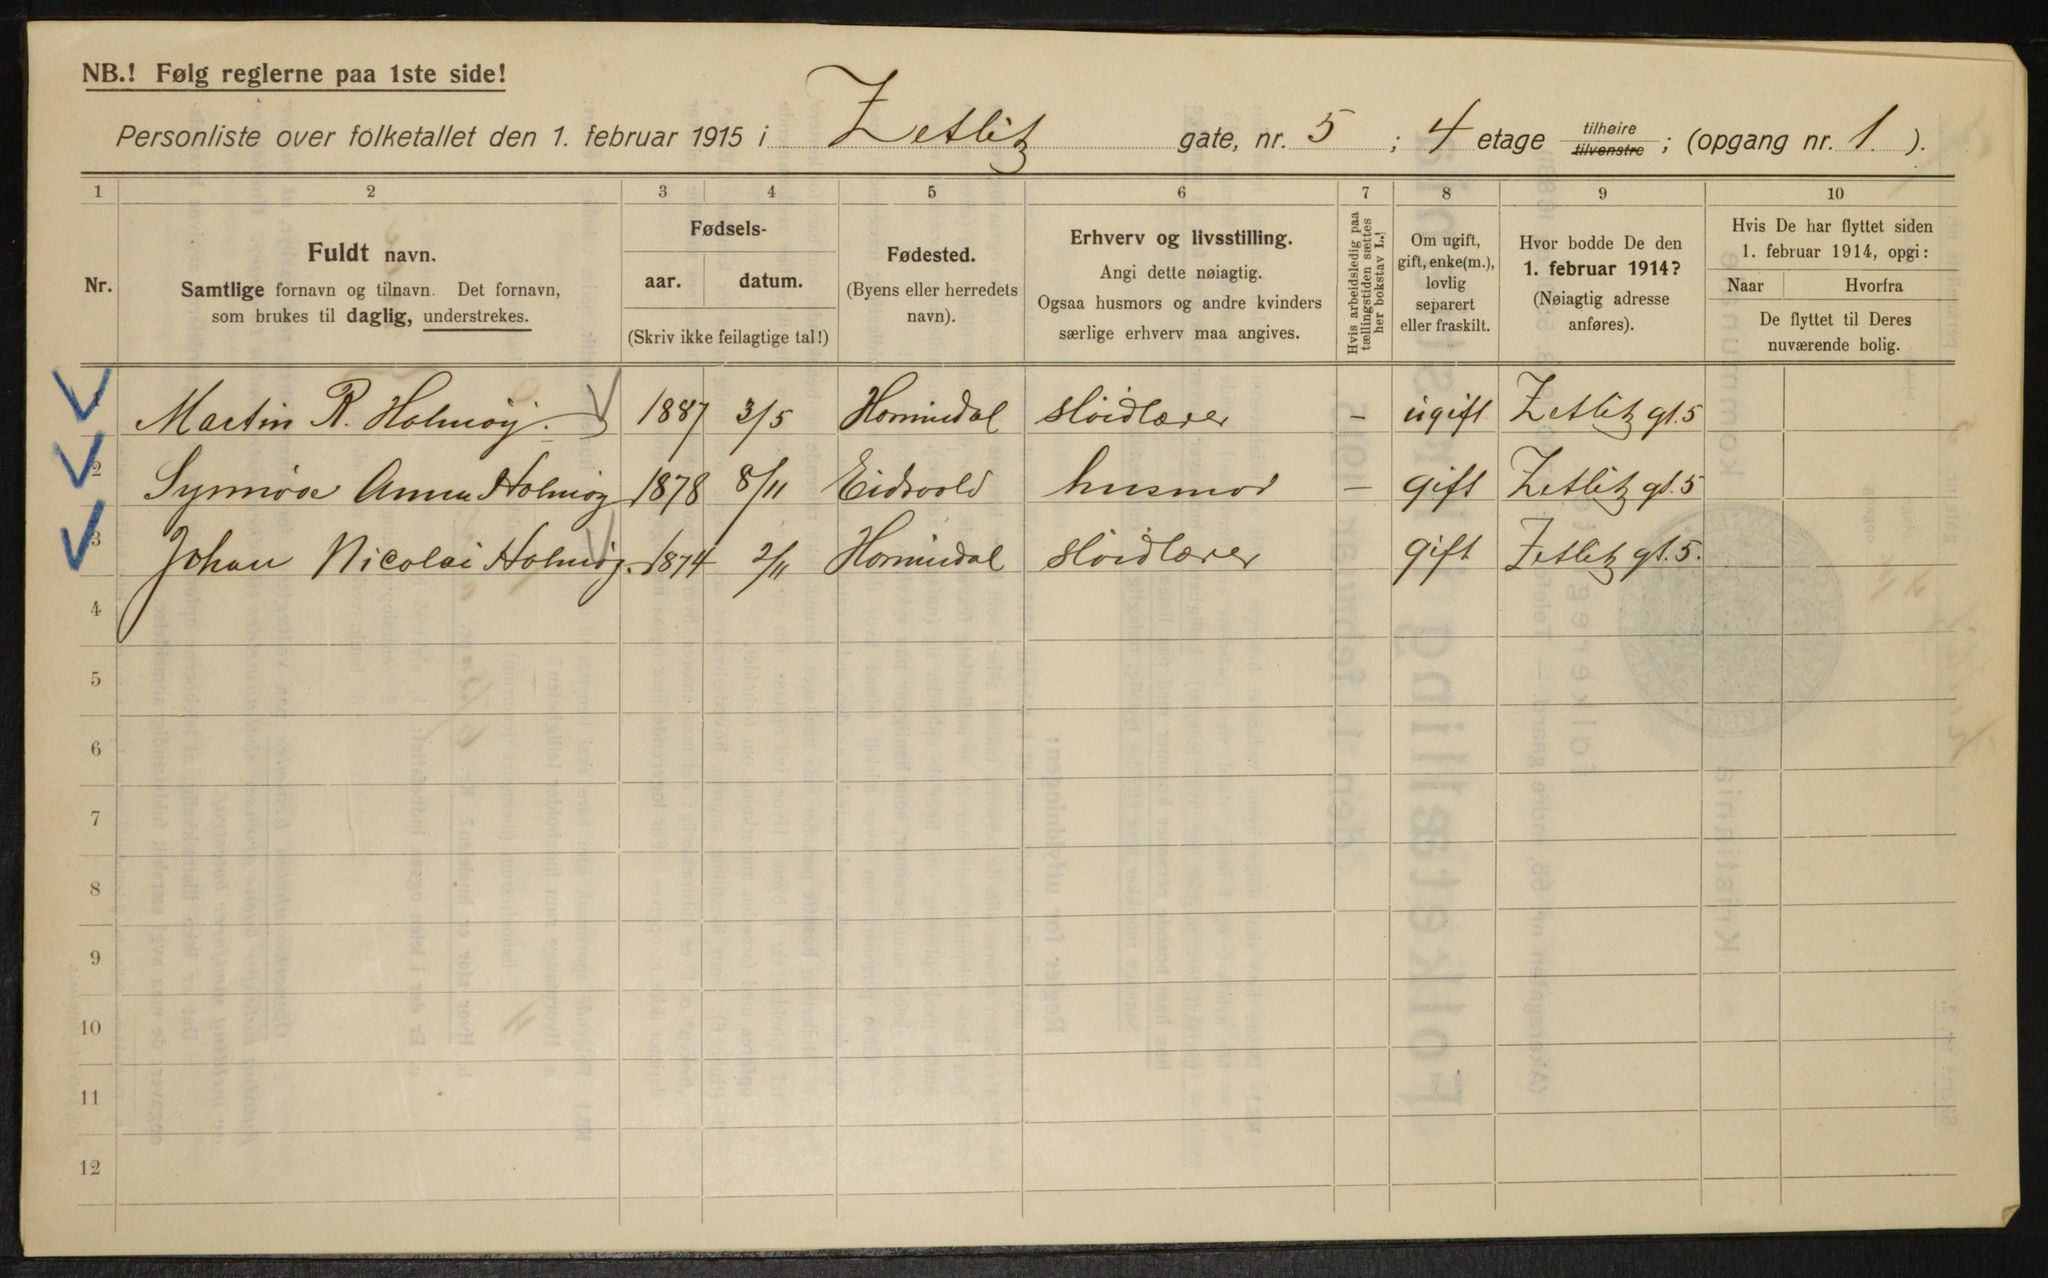 NB.! Følg reglerne paa 1ste side!
Personliste over folketallet den 1. februar 1915 i Zetlitz gate, nr. 5 ; 4 etage tilhøire tilvenstre ; (opgang nr. 1. ).
1 2 3 4 5 6 7 8 9 10
Nr.
Fuldt navn.
Samtlige fornavn og tilnavn. Det fornavn,
som brukes til daglig, understrekes.
Fødsels-
aar. datum.
(Skriv ikke feilagtige tal!)
Fødested.
(Byens eller herredets
navn).
Erhverv og livsstilling.
Angi dette nøiagtig.
Ogsaa husmors og andre kvinders
særlige erhverv maa angives.
Hvis arbeidsledig paa
tællingstiden sættes
her bokstav L.!
Om ugift,
gift, enke(m.),
lovlig
separert
eller fraskilt.
Hvor bodde De den
1. februar 1914?
(Nøiagtig adresse
anføres).
Hvis De har flyttet siden
1. februar 1914, opgi:
Naar Hvorfra
De flyttet til Deres
nuværende bolig.
1 Martin R. Holmøy. 1887 3/5 Hornindal sløidlærer - ugift Zetlitz gt. 5
2 Synnøve Anna Holmøy 1878 8/11 Eidsvold husmor - gift Zetlitz gt. 5
3 Johan Nicolai Holmøy. 1874 2/11 Hornindal sløidlærer gift Zetlitz gt. 5.
4
5
6
7
8
9
10
11
12